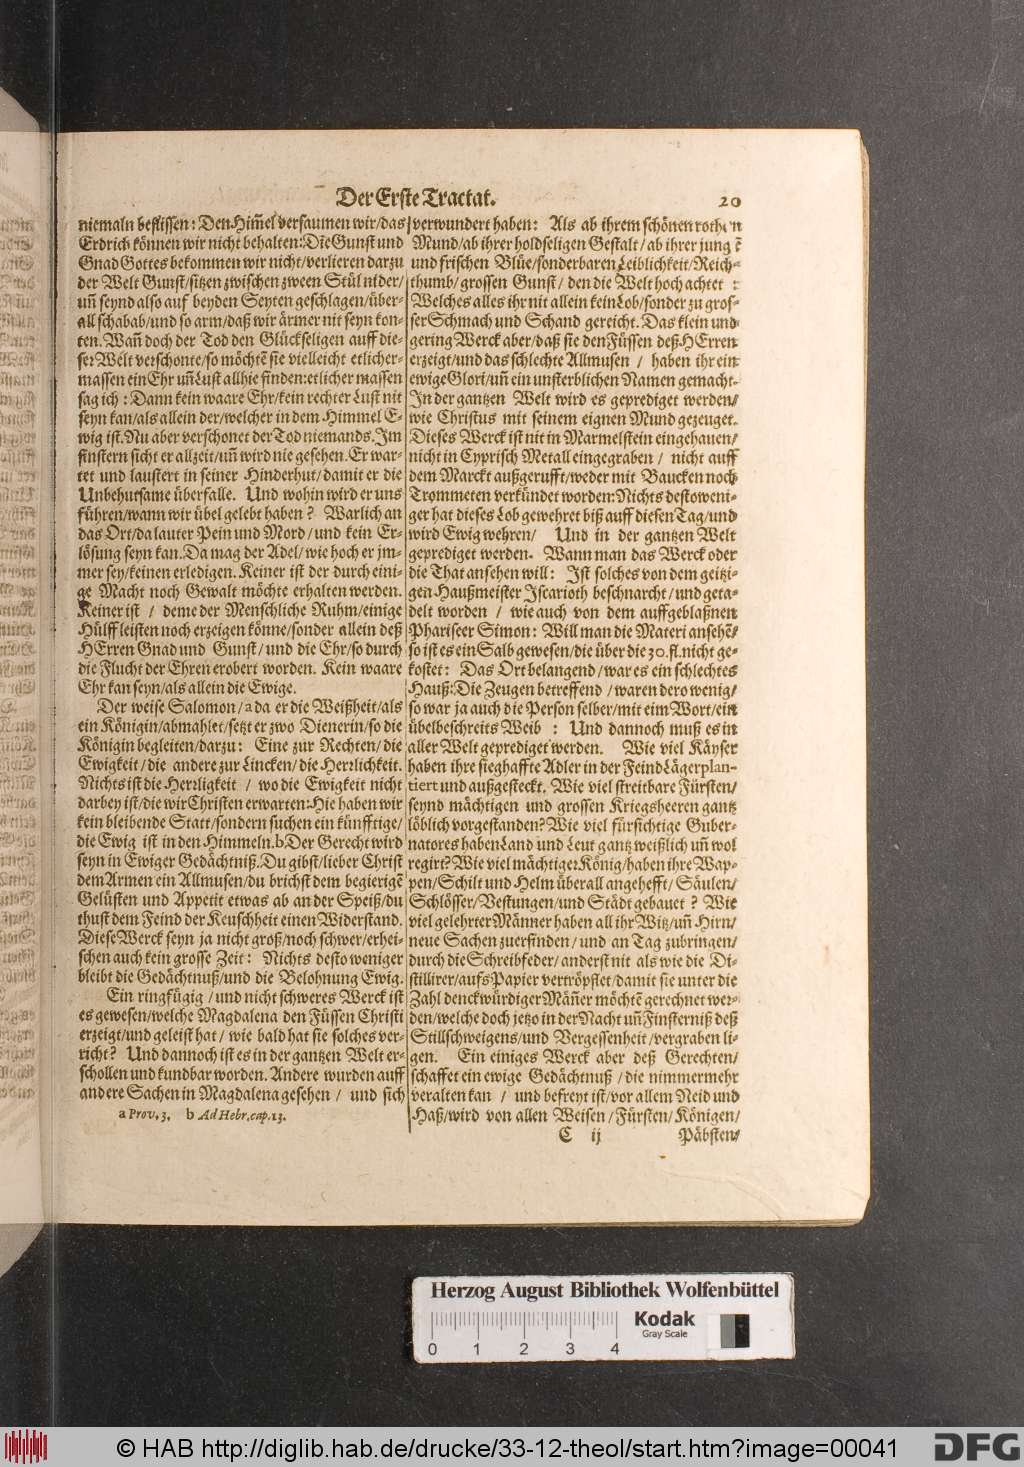 Der Erste Tractat. 20
niemaln beflissen: Den Him̃el versaumen wir/das
Erdrich können wir nicht behalten: Die Gunst und
Gnad Gottes bekommen wir nicht/verlieren darzu
der Welt Gunst/sitzen zwischen zween Stül nider/
uñ seynd also auf beyden Seyten geschlagen/über-
all schabab/und so arm/daß wir ärmer nit seyn kon-
ten. Wañ doch der Tod den Glückseligen auff die-
ser Welt verschonte/so möchtẽ sie vielleicht etlicher-
massen ein Ehr uñ Lust allhie finden: etlicher massen
sag ich: Dann kein waare Ehr/kein rechter Lust nit
seyn kan/als allein der/welcher in dem Himmel E-
wig ist. Nu aber verschonet der Tod niemands. Im
finstern sicht er allzeit/uñ wird nie gesehen. Er war-
tet und laustert in seiner Hinderhut/damit er die
Unbehutsame überfalle. Und wohin wird er uns
führen/wann wir übel gelebt haben? Warlich an
das Ort/da lauter Pein und Mord/und kein Er-
lösung seyn kan. Da mag der Adel/wie hoch er jm-
mer sey/keinen erledigen. Keiner ist der durch eini-
ge Macht noch Gewalt möchte erhalten werden.
Keiner ist/deme der Menschliche Ruhm/einige
Hülff leisten noch erzeigen könne/sonder allein deß
HErren Gnad und Gunst/und die Ehr/so durch
die Flucht der Ehren erobert worden. Kein waare
Ehr kan seyn/als allein die Ewige.
Der weise Salomon/a da er die Weißheit/als
ein Königin/abmahlet/setzt er zwo Dienerin/so die
Königin begleiten/darzu: Eine zur Rechten/die
Ewigkeit/die andere zur Lincken/die Herꝛlichkeit.
Nichts ist die Herꝛligkeit/wo die Ewigkeit nicht
darbey ist/die wir Christen erwarten: Hie haben wir
kein bleibende Statt/sondern suchen ein künfftige/
die Ewig ist in den Himmeln. b Der Gerecht wird
seyn in Ewiger Gedächtniß. Du gibst/lieber Christ
dem Armen ein Allmusen/du brichst dem begierigẽ
Gelüsten und Appetit etwas ab an der Speiß/du
thust dem Feind der Keuschheit einen Widerstand.
Diese Werck seyn ja nicht groß/noch schwer/erhei-
schen auch kein grosse Zeit: Nichts desto weniger
bleibt die Gedächtnuß/und die Belohnung Ewig.
Ein ringfügig/und nicht schweres Werck ist
es gewesen/welche Magdalena den Füssen Christi
erzeigt/und geleist hat/wie bald hat sie solches ver-
richt? Und dannoch ist es in der gantzen Welt er-
schollen und kundbar worden. Andere wurden auff
andere Sachen in Magdalena gesehen/und sich
a Prov. 3. b Ad Hebr. cap. 13.
verwundert haben: Als ab ihrem schönen rothen
Mund/ab ihrer holdseligen Gestalt/ab ihrer jungẽ
und frischen Blüe/sonderbaren Leiblichkeit/Reich-
thumb/grossen Gunst/den die Welt hoch achtet:
Welches alles ihr nit allein kein Lob/sonder zu gros-
ser Schmach und Schand gereicht. Das klein und
gering Werck aber/daß sie den Füssen deß HErren
erzeigt/und das schlechte Allmusen/haben ihr ein
ewige Glori/uñ ein unsterblichen Namen gemacht.
In der gantzen Welt wird es geprediget werden/
wie Christus mit seinem eignen Mund gezeuget.
Dieses Werck ist nit in Marmelstein eingehauen/
nicht in Cyprisch Metall eingegraben/nicht auff
dem Marckt außgerufft/weder mit Baucken noch
Trommeten verkündet worden: Nichts destoweni-
ger hat dieses Lob gewehret biß auff diesen Tag/und
wird Ewig wehren/Und in der gantzen Welt
geprediget werden. Wann man das Werck oder
die That ansehen will: Ist solches von dem geitzi-
gen Haußmeister Iscarioth beschnarcht/und geta-
delt worden/wie auch von dem auffgeblaßnen
Phariseer Simon: Will man die Materi ansehẽ/
so ist es ein Salb gewesen/die über die 30. fl. nicht ge-
kostet: Das Ort belangend/war es ein schlechtes
Hauß: Die Zeugen betreffend/waren dero wenig/
so war ja auch die Person selber/mit eim Wort/ein
übelbeschreits Weib: Und dannoch muß es in
aller Welt geprediget werden. Wie viel Käyser
haben ihre sieghaffte Adler in der Feind Läger plan-
tiert und außgesteckt. Wie viel streitbare Fürsten/
seynd mächtigen und grossen Kriegsheeren gantz
löblich vorgestanden? Wie viel fürsichtige Guber-
natores haben Land und Leut gantz weißlich uñ wol
regirt? Wie viel mächtiger König/haben ihre Wap-
pen/Schilt und Helm überall angehefft/Säulen/
Schlösser/Vestungen/und Städt gebauet? Wie
viel gelehrter Männer haben all ihr Witz/uñ Hirn/
neue Sachen zuerfinden/und an Tag zubringen/
durch die Schreibfeder/anderst nit als wie die Di-
stillirer/aufs Papier vertröpflet/damit sie unter die
Zahl denckwürdiger Mäñer möchtẽ gerechnet wer-
den/welche doch jetzo in der Nacht uñ Finsterniß deß
Stillschweigens/und Vergessenheit/vergraben li-
gen. Ein einiges Werck aber deß Gerechten/
schaffet ein ewige Gedächtnuß/die nimmermehr
veralten kan/und befreyt ist/vor allem Neid und
Haß/wird von allen Weisen/Fürsten/Königen/
C ij Päbsten/
Herzog August Bibliothek Wolfenbüttel
0 1 2 3 4
Kodak
Gray Scale
© HAB http://diglib.hab.de/drucke/33-12-theol/start.htm?image=00041
DFG